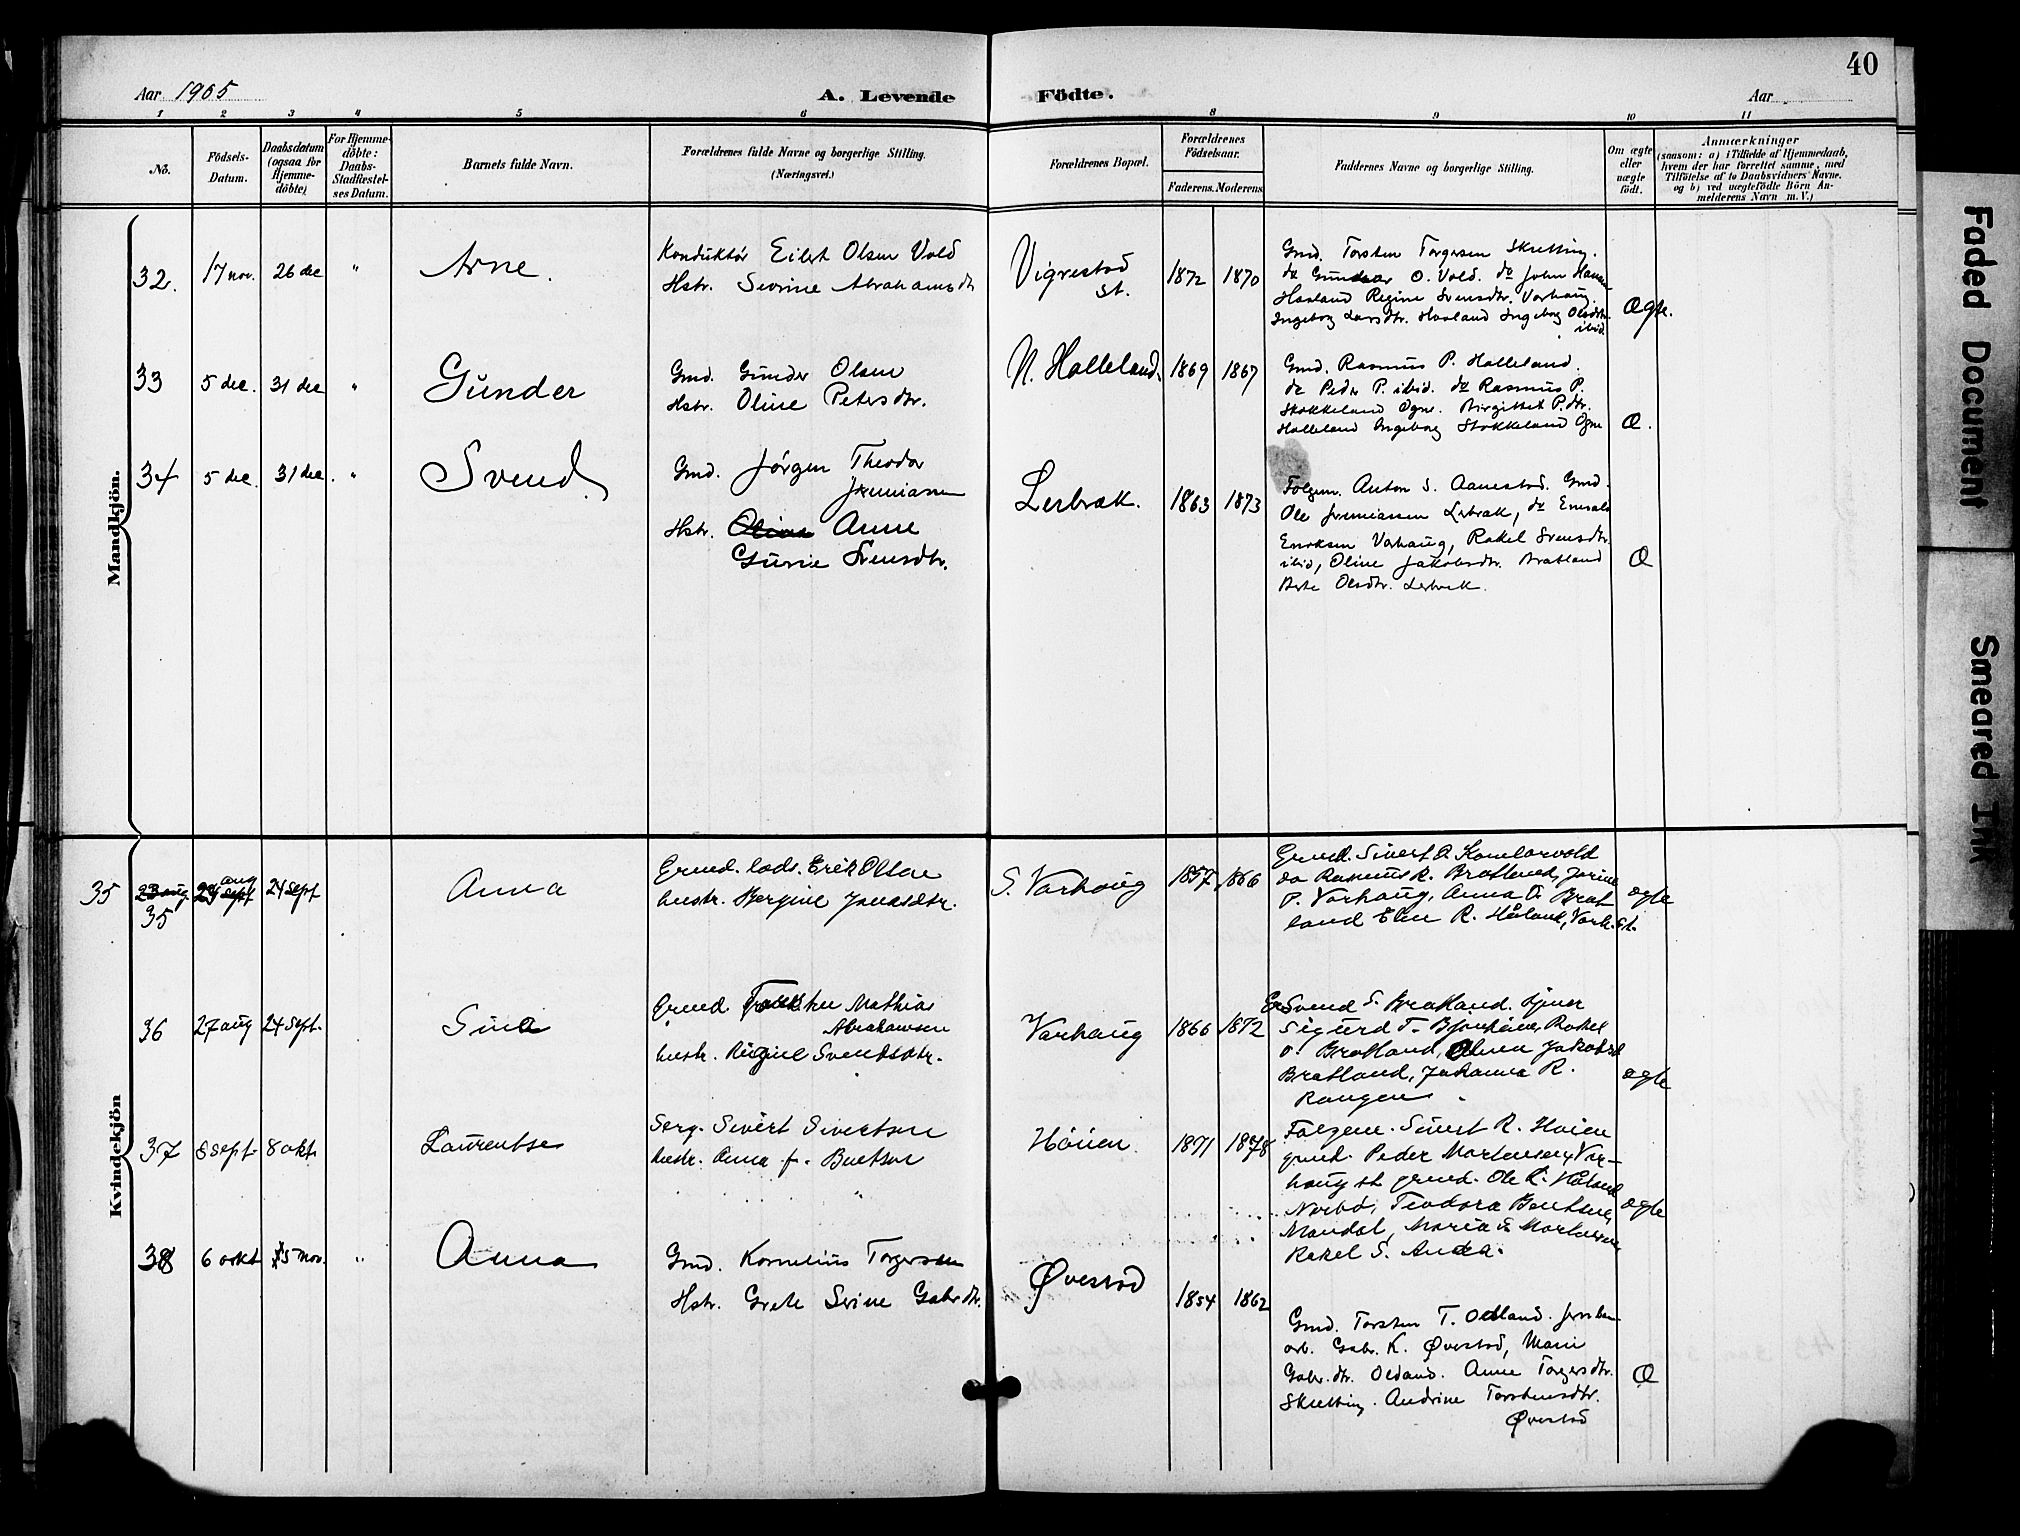 40
Aar 1905
A. Levende
Födte.
Aar
1 2 3 4 5 6 8 9 10 11
No.
Födsels-Datum.
Daabsdatum (ogsaa for Hjemme-döbte)
For Hjemme-döbte: Daabs-Stadfæstel-ses Datum.
Barnets fulde Navn.
Forældrenes fulde Navne og borgerlige Stilling.
(Næringsvei.)
Forældrenes Bopæl.
Forældrenes Födselsaar.
Faderens. Moderens
Faddernes Navne og borgerlige Stilling.
Om ægte eller uægte födt.
Anmærkninger
(saasom: a) i Tilfælde af Hjemmedaab,
hvem der har forrettet samme, med
Tilföielse af to Daabsvidners Navne.
og b) ved uægtefödte Börn An-
melderens Navn m. V.)
Mandkjön.
32. 17 nov. 26 dec " Arne.
Konduktør Eilert Olsen Vold
Hstr. Sevrine Abrahamsdtr
Vigrestad
st.
1872 1870
Gmd. Torsten Torgersen Skretting.
do Gunnar O. Vold. do John Hansen
Haaland Regine Svensdtr. Varhaug.
Ingeborg Larsdtr. Haaland Ingeborg Olsdtr.
ibid.
Ægte.
33 5 dec. 31 dec " Gunder
Gmd. Gunder Olsen
Hstr. Oline Petersdtr.
N. Holleland.
1869 1867
Gmd. Rasmus P. Holleland.
do Peder P. ibid. do Rasmus P.
Stokkeland Ogne. Birgitte P.dtr.
Holleland Ingeborg Stokkeland Ogne
Æ.
34 5 dec. 31 dec. " Svend
Gmd. Jørgen Theodor
Jeremiassen
Hstr. Oline Anne
Gurie Svensdtr.
Lerbræk.
1863 1873
Folgem. Anton S. Aanestad. Gmd.
Ole Jeremiassen Lerbræk, do
Enoksen Varhaug, Rakel Svensdtr
ibid, Oline Jakobsdtr. Bratland
Berte Olsdtr. Lerbræk.
Æ
Kvindekjön
35 23 aug 24 sept aug 24 sept Anna
35
Grmd. lods. Erik Olsen
hustr. Bergine Jonasdtr.
S. Varhaug
1857 1866
Grmd. Sivert A. Kondarvold
do Rasmus R. Bratland, Jorine
P. Varhaug, Anna O. Brat
land Elen R. Håland, Varh. St.
ægte
36 27 aug 24 sept. Sina
Grmd Torsten Mathias
Abrahamsen
hustr. Regine Svendsdtr.
Varhaug
1866 1872
Svend S. Bratland. tjener
Sigurd T. Rakel
O. Bratland, Jakobsd
Bratland, Johanna R.
Rongen
ægte
37 8 sept. 8 okt. Laurentse
Serg. Sivert Sivertsen
hustr. Anna f. Bentsen
Höien.
1871 1878
Folgem. Sivert R. Hoien
grmd. Peder Mortensen, Var-
haug st grmd. Ole R. Håland
Nærbö, Teodora Bentsen,
Mandal, Maria Mortensen
Rakel S. Anda.
ægte
38 6 okt 5 nov. " Anna
Gmd. Kornelius Torgersen
Hstr. Grete Serine Gabr.dtr.
Øvestad
1854 1862
Gmd. Torsten T. Odland. Jernban
arb. Gabr. K. Øvestad, Marie
Gabr.dtr. Odland. Anne Torgersdtr.
Skretting. Andrine Torstensdtr.
Øvestad
Æ
Faded Document
Smeared Ink